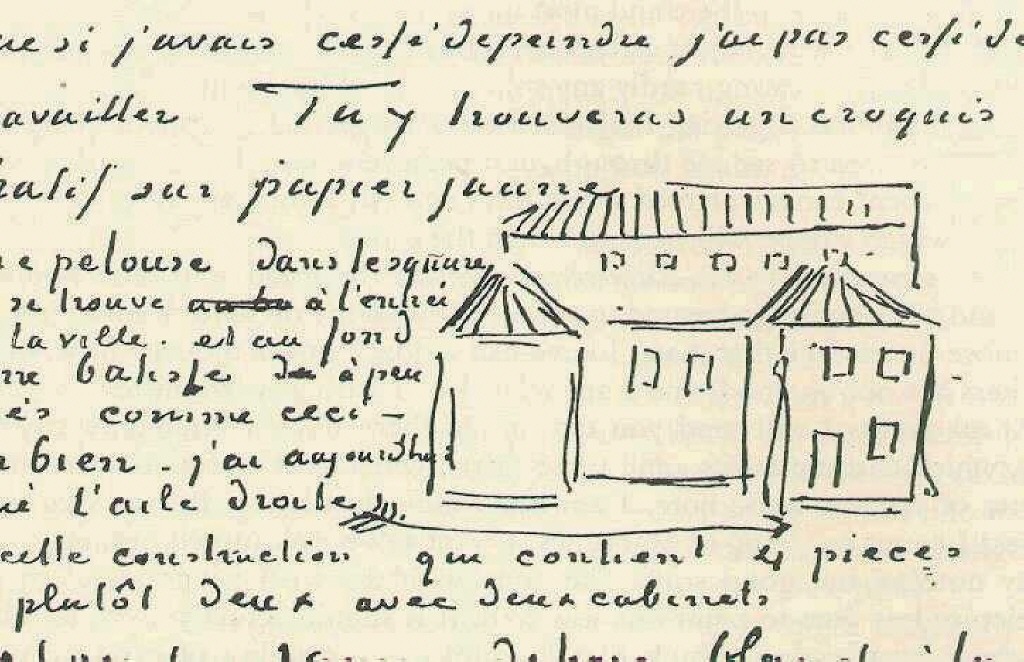 ue si j'avais cessé de peindre j'ai pas cessé de
availler Tu y trouveras un croquis
ratif sur papier jaune
ne pelouse dans le square
se trouve à l'entrée
la ville. et au fond
une batisse à peu
ès comme ceci –
bien. j'ai aujourdhui
ué l'aile droite
cette construction qui contient 4 pieces
plutôt deux avec deux cabinets